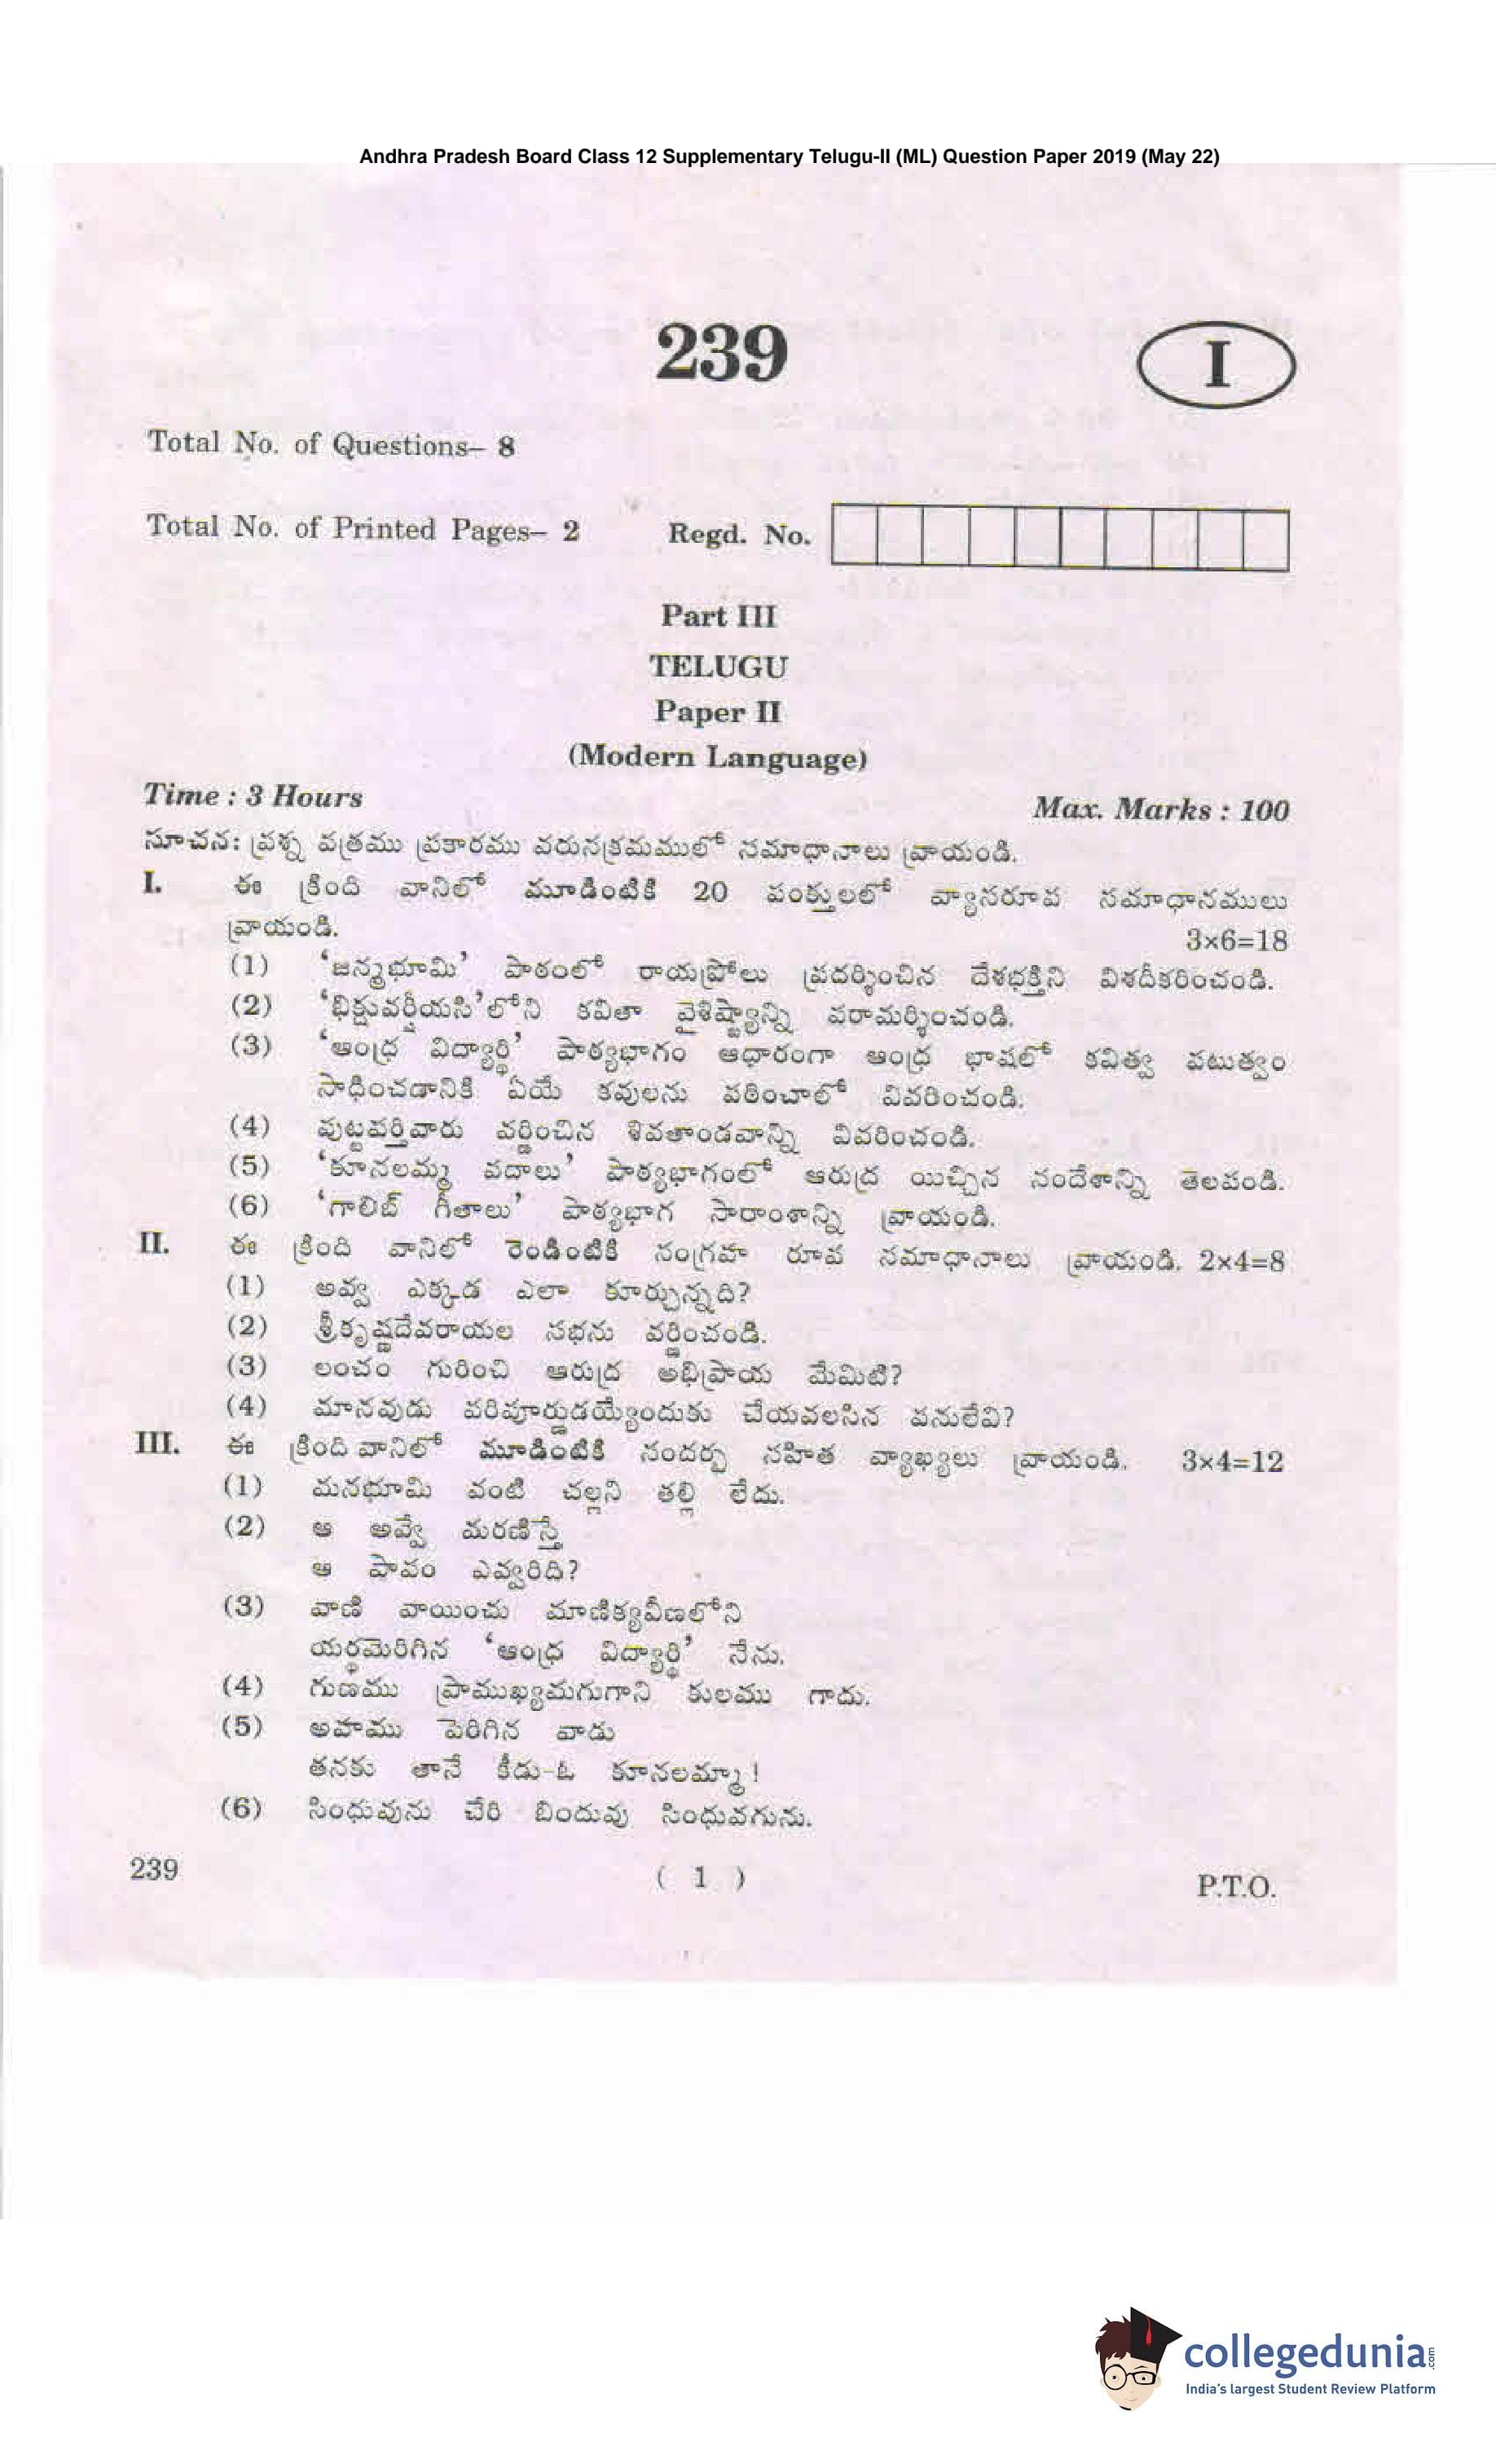 Andhra Pradesh Board Class 12 Supplementary Telugu-II (ML) Question Paper 2019 (May 22)
239
I
Total No. of Questions– 8
Total No. of Printed Pages– 2 Regd. No.
Part III
TELUGU
Paper II
(Modern Language)
Time : 3 Hours
Max. Marks : 100
సూచన: ప్రశ్న పత్రము ప్రకారము వరుసక్రమములో సమాధానాలు వ్రాయండి.
I. ఈ క్రింది వానిలో మూడింటికి 20 పంక్తులలో వ్యాసరూప సమాధానములు
వ్రాయండి. 3×6=18
(1) ‘జన్మభూమి’ పాఠంలో రాయప్రోలు ప్రదర్శించిన దేశభక్తిని విశదీకరించండి.
(2) ‘భిక్షువర్షీయసి’లోని కవితా వైశిష్ట్యాన్ని పరామర్శించండి.
(3) ‘ఆంధ్ర విద్యార్థి’ పాఠ్యభాగం ఆధారంగా ఆంధ్ర భాషలో కవిత్వ పటుత్వం
సాధించడానికి ఏయే కవులను పఠించాలో వివరించండి.
(4) పుట్టపర్తివారు వర్ణించిన శివతాండవాన్ని వివరించండి.
(5) ‘కూనలమ్మ పదాలు’ పాఠ్యభాగంలో ఆరుద్ర యిచ్చిన సందేశాన్ని తెలపండి.
(6) ‘గాలిబ్ గీతాలు’ పాఠ్యభాగ సారాంశాన్ని వ్రాయండి.
II. ఈ క్రింది వానిలో రెండింటికి సంగ్రహ రూప సమాధానాలు వ్రాయండి. 2×4=8
(1) అవ్వ ఎక్కడ ఎలా కూర్చున్నది?
(2) శ్రీకృష్ణదేవరాయల సభను వర్ణించండి.
(3) లంచం గురించి ఆరుద్ర అభిప్రాయ మేమిటి?
(4) మానవుడు పరిపూర్ణుడయ్యేందుకు చేయవలసిన పనులేవి?
III. ఈ క్రింది వానిలో మూడింటికి సందర్భ సహిత వ్యాఖ్యలు వ్రాయండి. 3×4=12
(1) మనభూమి వంటి చల్లని తల్లి లేదు.
(2) ఆ అవ్వే మరణిస్తే
ఆ పాపం ఎవ్వరిది?
(3) వాణి వాయించు మాణిక్యవీణలోని
యర్థమెరిగిన ‘ఆంధ్ర విద్యార్థి’ నేను.
(4) గుణము ప్రాముఖ్యమగుగాని కులము గాదు.
(5) అహము పెరిగిన వాడు
తనకు తానే కీడు-ఓ కూనలమ్మా!
(6) సింధువును చేరి బిందువు సింధువగును.
239 ( 1 ) P.T.O.
collegedunia.com
India's largest Student Review Platform